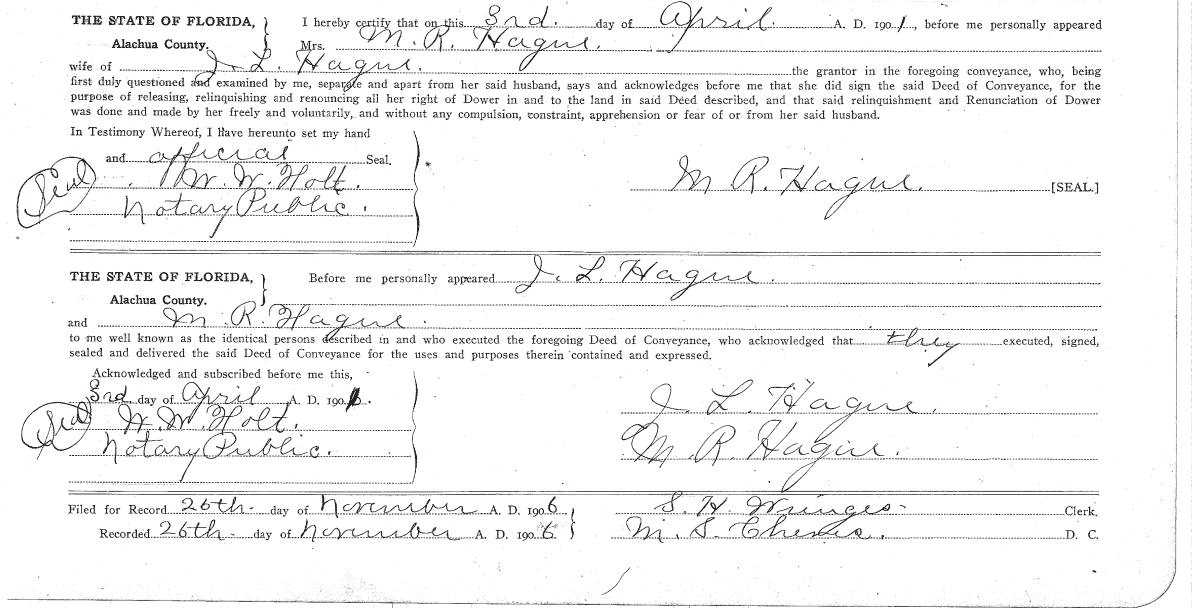 THE STATE OF FLORIDA, } I hereby certify that on this 3rd. day of April. A. D. 1901, before me personally appeared
Alachua County. Mrs. M. R. Hague.
wife of J. L. Hague. the grantor in the foregoing conveyance, who, being
first duly questioned and examined by me, separate and apart from her said husband, says and acknowledges before me that she did sign the said Deed of Conveyance, for the
purpose of releasing, relinquishing and renouncing all her right of Dower in and to the land in said Deed described, and that said relinquishment and Renunciation of Dower
was done and made by her freely and voluntarily, and without any compulsion, constraint, apprehension or fear of or from her said husband.
In Testimony Whereof, I Have hereunto set my hand
and official Seal.
(Seal) W. W. Holt. M R. Hague. [SEAL.]
Notary Public.
THE STATE OF FLORIDA, } Before me personally appeared J. L. Hague.
Alachua County.
and M R. Hague.
to me well known as the identical persons described in and who executed the foregoing Deed of Conveyance, who acknowledged that they executed, signed,
sealed and delivered the said Deed of Conveyance for the uses and purposes therein contained and expressed.
Acknowledged and subscribed before me this,
3rd day of April A. D. 190 . J. L. Hague.
(Seal) W. W. Holt.
Notary Public. M. R. Hague.
Filed for Record 26th. day of November A. D. 1906 S. H. Wienges. Clerk.
Recorded 26th. day of November A. D. 1906. M. S. D. C.